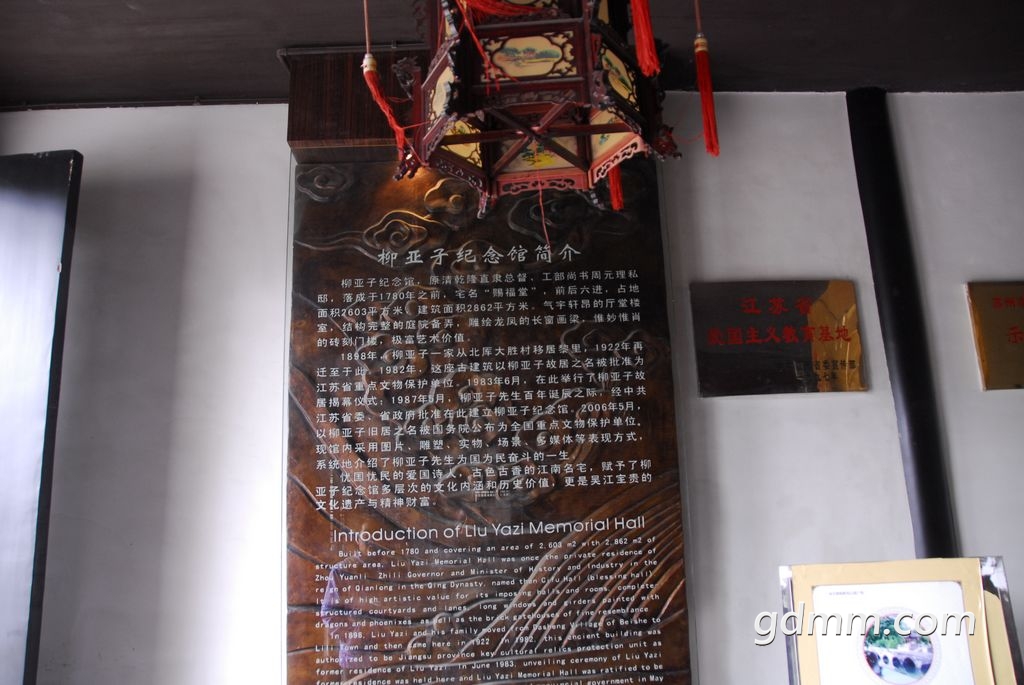 柳亚子纪念馆简介
柳亚子纪念馆，原清乾隆直隶总督、工部尚书周元理私
邸，落成于1780年之前，宅名“赐福堂”，前后六进，占地
面积2603平方米，建筑面积2862平方米，气宇轩昂的厅堂楼
室，结构完整的庭院备弄，雕绘龙凤的长窗画梁，惟妙惟肖
的砖刻门楼，极富艺术价值。
1898年，柳亚子一家从北厍大胜村移居黎里，1922年再
迁至于此。1982年，这座古建筑以柳亚子故居之名被批准为
江苏省重点文物保护单位。1983年6月，在此举行了柳亚子故
居揭幕仪式；1987年5月，柳亚子先生百年诞辰之际，经中共
江苏省委、省政府批准在此建立柳亚子纪念馆。2006年5月，
以柳亚子旧居之名被国务院公布为全国重点文物保护单位。
现馆内采用图片、雕塑、实物、场景、多媒体等表现方式，
系统地介绍了柳亚子先生为国为民奋斗的一生。
忧国忧民的爱国诗人，古色古香的江南名宅，赋予了柳
亚子纪念馆多层次的文化内涵和历史价值，更是吴江宝贵的
文化遗产与精神财富。
Introduction of Liu Yazi Memorial Hall
Built before 1780 and covering an area of 2,603 m2 with 2,862 m2 of
structure area, Liu Yazi Memorial Hall was once the private residence of
Zhou Yuanli, Zhili Governor and Minister of History and Industry in the
reign of Qianlong in the Qing Dynasty, named than Cifu Hall (blessing hall).
It is of high artistic value for its imposing halls and rooms, complete
structured courtyards and lanes, long windows and girders painted with
dragons and phoenixes as well as the brick gatehouse of fine resemblance
In 1898, Liu Yazi and his family moved from Dasheng Village of Beishe to
Lili Town and then came here in 1922. In 1982, this ancient building was
authorized to be Jiangsu province key cultural relics protection unit as
former residence of Liu Yazi. In June 1983, unveiling ceremony of Liu Yazi
former residence was held here and Liu Yazi Memorial Hall was ratified to be
government in May
江苏省
爱国主义教育基地
gdmm.com